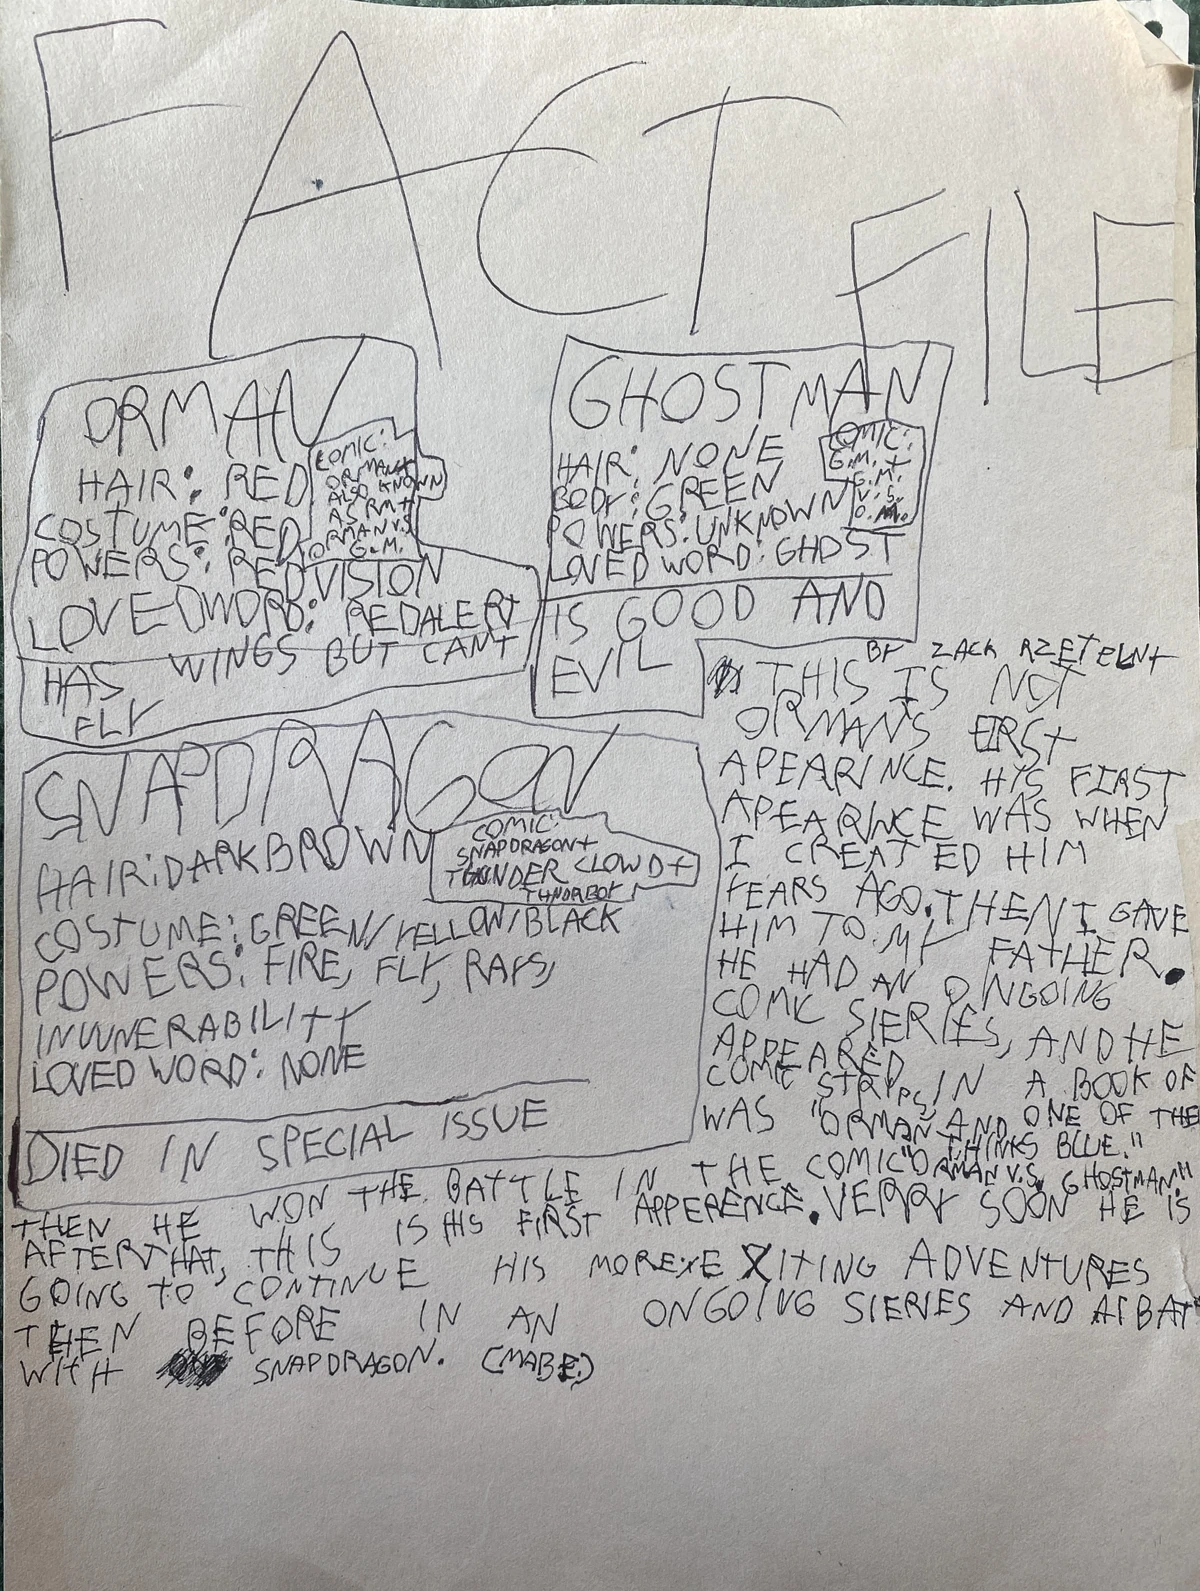 FACT
FILE
ORMAN
HAIR: RED
COSTUME: RED
POWERS: REDVISION
LOVEDWORD: REDALERT
HAS WINGS BUT CANT
FLY
COMIC:
ORMAN+
ALSO KNOWN
AS RM+
ORMAN V.S.
G.M.
GHOSTMAN
HAIR: NONE
BODY: GREEN
POWERS: UNKNOWN
LOVED WORD: GHOST
IS GOOD AND
EVIL
COMIC:
G.M. +
G.M.
V.S.
O.M.
SNAPDRAGON
HAIR: DARK BROWN
COSTUME: GREEN/YELLOW/BLACK
POWERS: FIRE, FLY, RAYS,
INVUNERABILITY
LOVED WORD: NONE
DIED IN SPECIAL ISSUE
COMIC:
SNAPDRAGON+
THUNDER CLOWD+
BY ZACK RZETELNY
THIS IS NOT
ORMANS FIRST
APEARINCE. HIS FIRST
APEARINCE WAS WHEN
I CREATED HIM
YEARS AGO. THEN I GAVE
HIM TO MY FATHER.
HE HAD AN ONGOING
COMIC SIERIES, AND HE
APPEARED IN A BOOK OF
COMIC STRIPS, ONE OF THE
WAS "ORMAN AND THINKS BLUE."
THEN HE WON THE BATTLE IN THE COMIC "ORMAN V.S. GHOSTMAN"
AFTERTHAT, THIS IS HIS FIRST APPERENCE. VERRY SOON HE IS
GOING TO CONTINUE HIS MORE EXITING ADVENTURES
THEN BEFORE IN AN ONGOING SIERIES AND
WITH SNAPDRAGON. (MABE.)